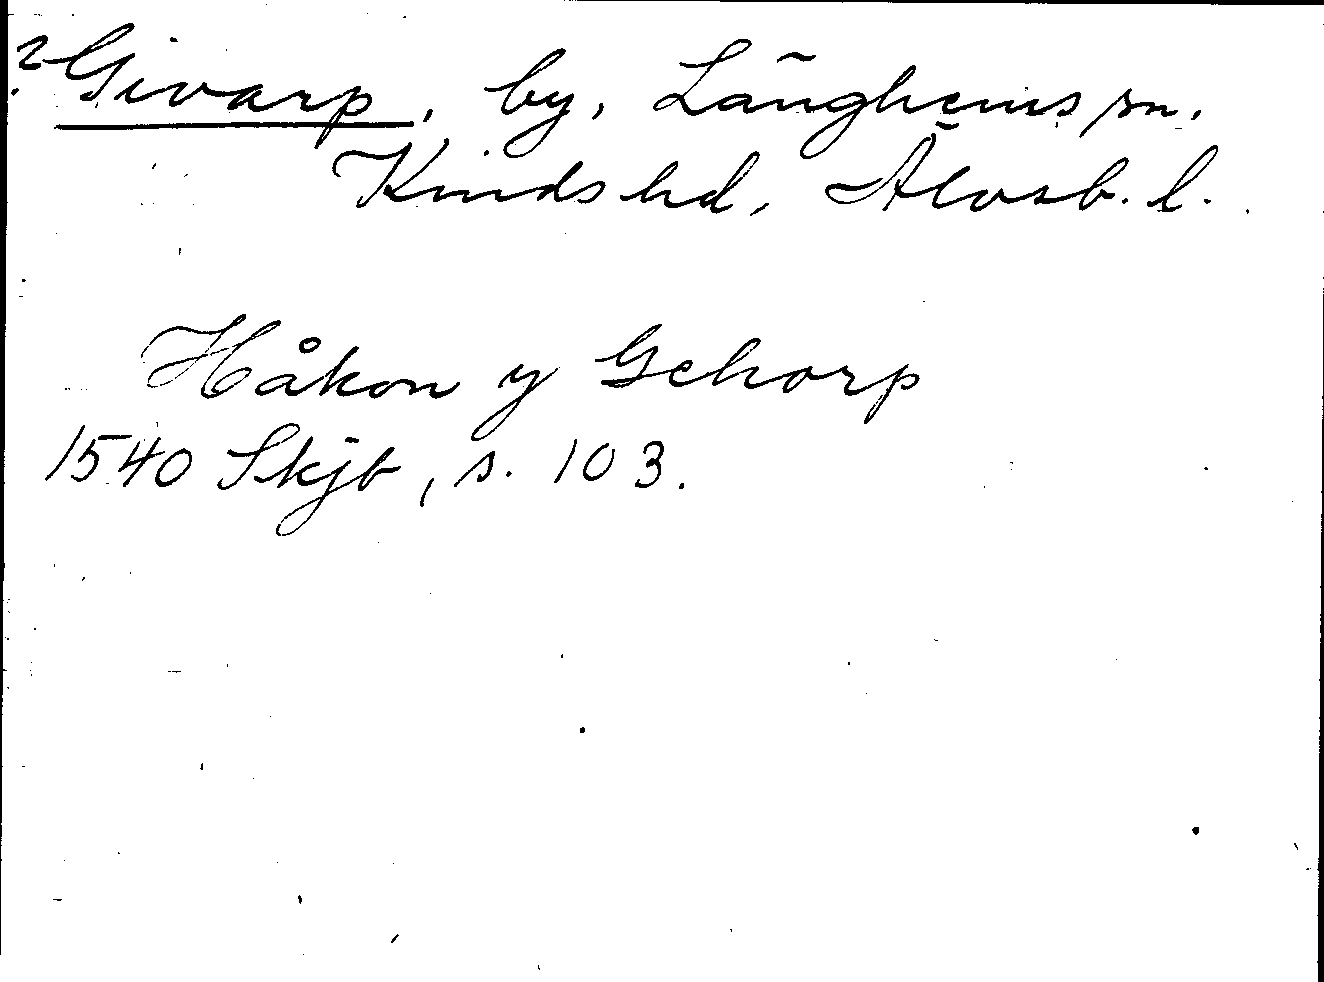 ? Givarp, by, Länghems sn.
Kinds hd, Älvsb. l.
Håkon y Gehorp
1540 Skjb, s. 103.